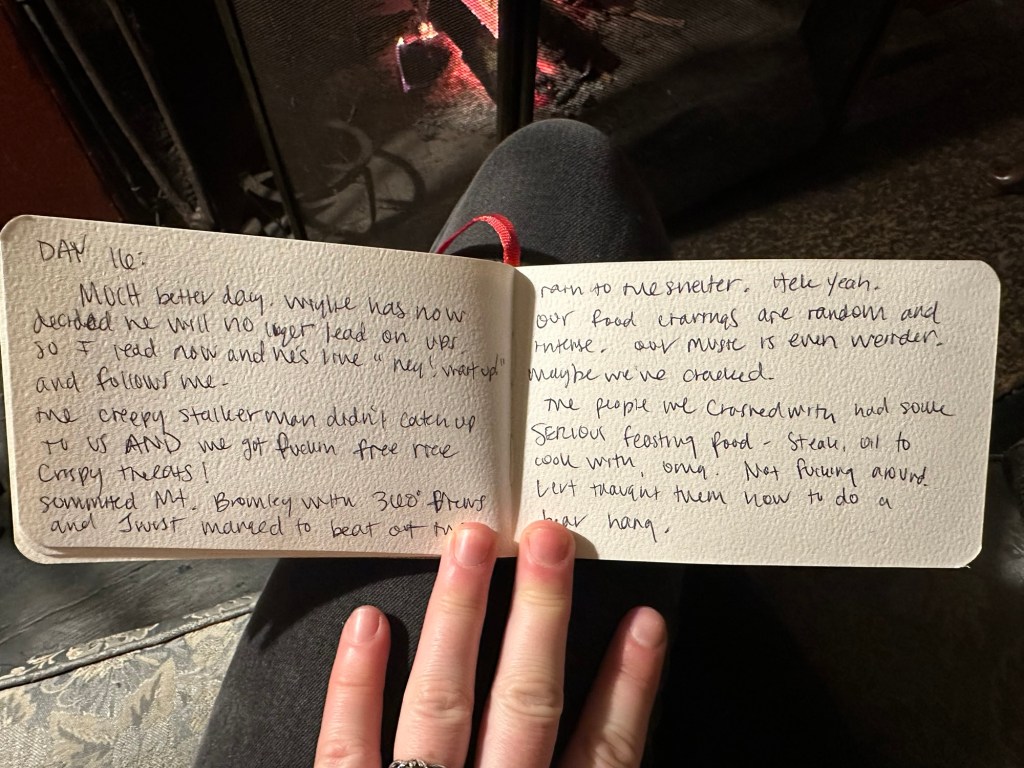 DAY 16:
MUCH better day. Wylie has now
decided he will no loger lead on ups
so I lead now and he's like "hey! wait up"
and follows me.
The creepy stalker man didn't catch up
TO US AND we got fuckin free rice
Crispy treats!
summited Mt. Bromley with 360° views
and Jwust manged to beat out
rain to the shelter. Hell Yeah.
our food cravings are random and
intense. our music is even weirder.
maybe we've cracked.
The people we crashed with had some
SERIOUS feasting food - Steak, oil to
cook with, omg. Not fucking around.
taught them how to do a
bear hang.